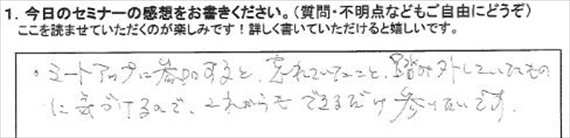 1. 今日のセミナーの感想をお書きください。(質問・不明点などもご自由にどうぞ)
ここを読ませていただくのが楽しみです!詳しく書いていただけると嬉しいです。
・ミートアップに参加すると、忘れていたこと、踏み外していたもの
に気がつけるので、これからもできるだけ参りたいです。